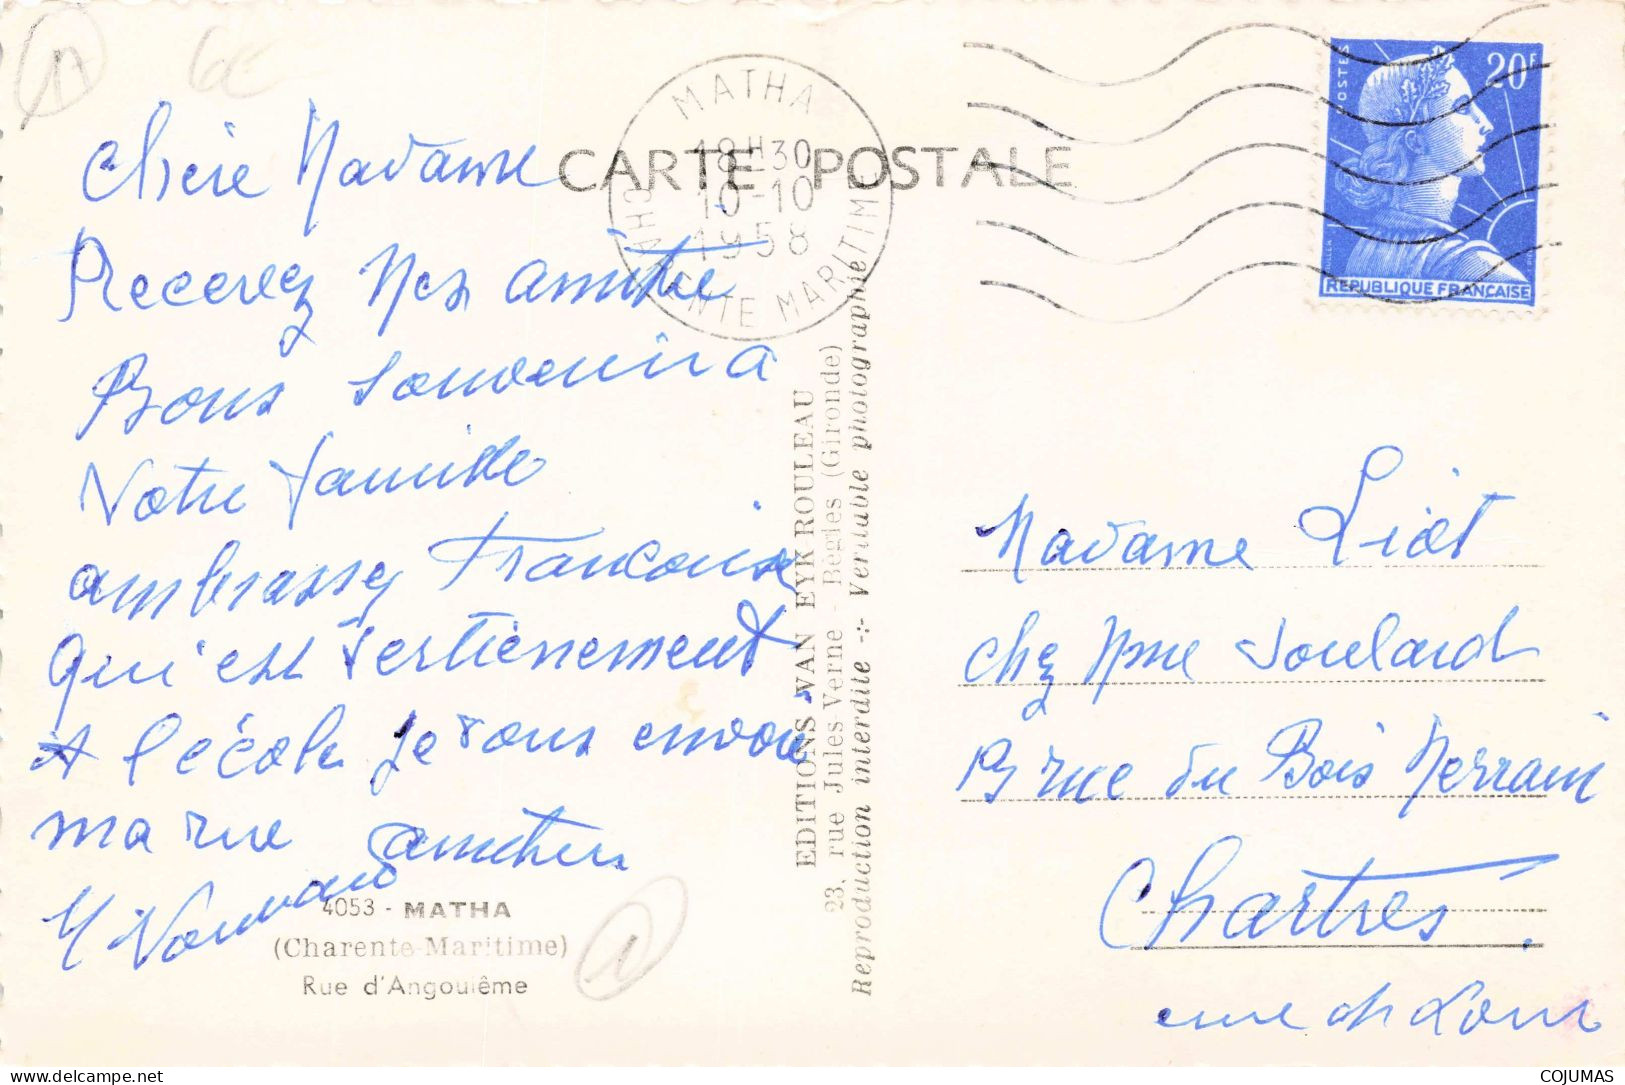 6€
CARTE POSTALE
MATHA
18H30
10-10
1958
CHARENTE MARITIME
POSTES
20F
REPUBLIQUE FRANÇAISE
Chère Madame
Recevez Nos amitié
Bons souvenir a
Votre famille
ambrassez Francoise
Qui est sertienement
A l'école je vous envoie
ma rue amitiers
4053 - MATHA
(Charente-Maritime)
Rue d'Angoulême
EDITIONS VAN EYK ROULEAU
23, rue Jules-Verne - Bègles (Gironde)
Reproduction interdite -:- Véritable photographie
Madame Liot
chez Mme Soulard
rue du Bois Merrain
Chartres
eure et Loire
COJUMAS